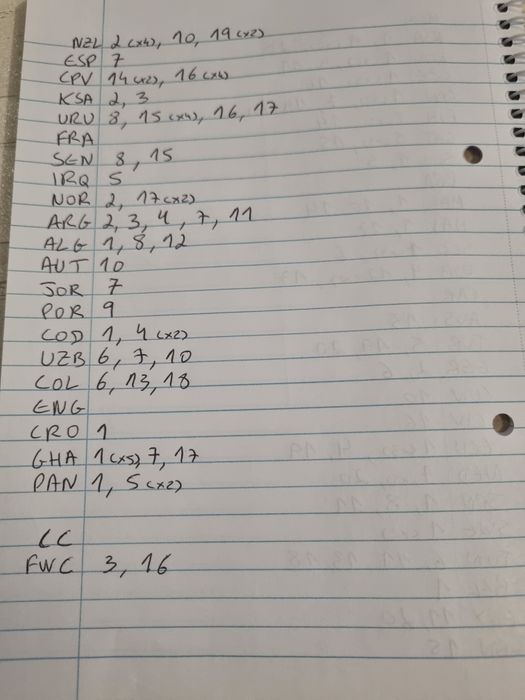 NZL 2 (x4), 10, 19 (x2)
ESP 7
CPV 14 (x2), 16 (x4)
KSA 2, 3
URU 8, 15 (x4), 16, 17
FRA
SEN 8, 15
IRQ 5
NOR 2, 17 (x2)
ARG 2, 3, 4, 7, 11
ALG 1, 8, 12
AUT 10
JOR 7
POR 9
COD 1, 4 (x2)
UZB 6, 7, 10
COL 6, 13, 18
ENG
CRO 1
GHA 1 (x5), 7, 17
PAN 1, 5 (x2)
CC
FWC 3, 16